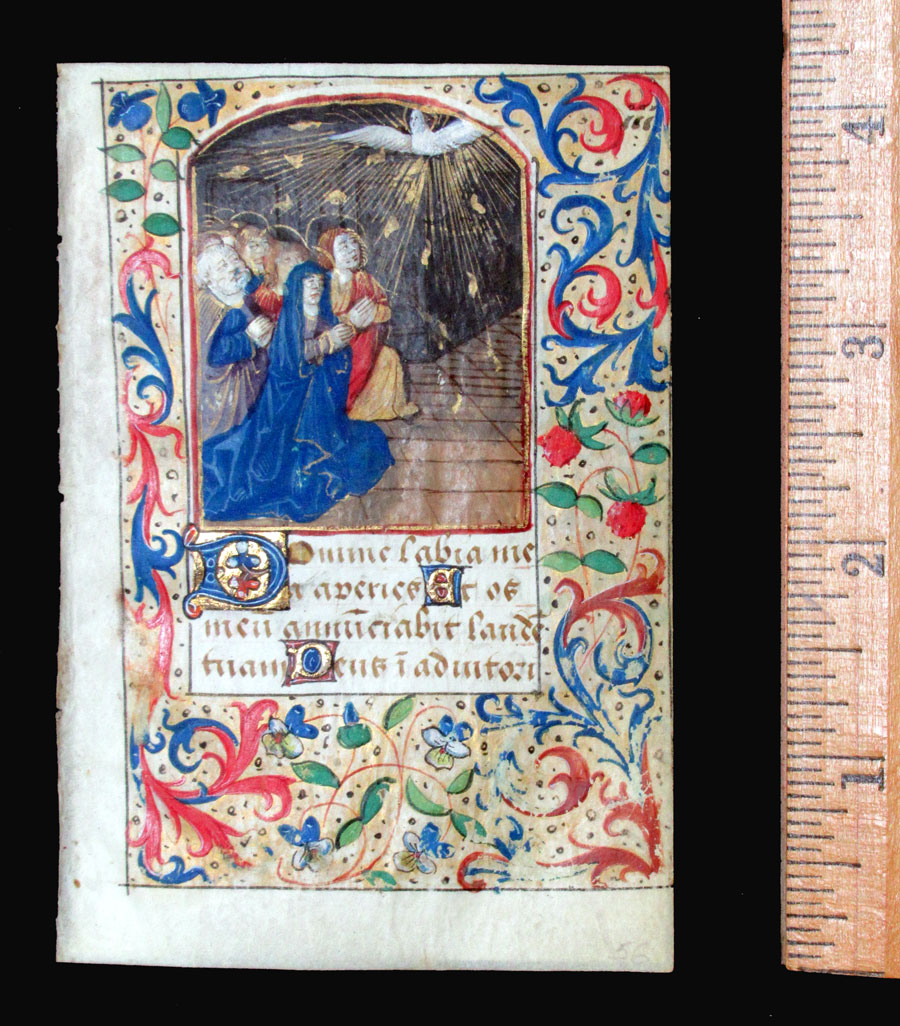 Domine labia me
a aperies Et os
meū annūciabit laudē
tuam Deus ī adiutori
56
4
3
2
1